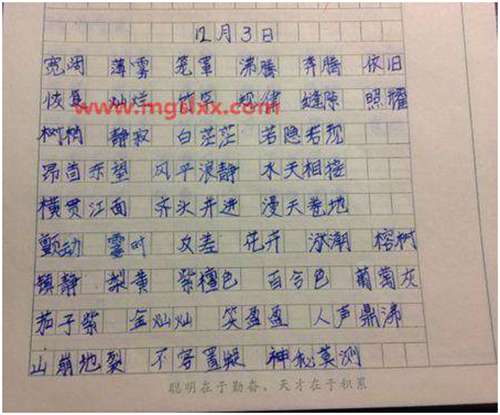 12月3日
宽阔 薄雾 笼罩 沸腾 奔腾 依旧
恢复 灿烂 规律 缝隙 照耀
www.mgslxx.com
树梢 静寂 白茫茫 若隐若现
昂首东望 风平浪静 水天相接
横贯江面 齐头并进 漫天卷地
颤动 霎时 交差 花卉 冰潮 榕树
镇静 梨黄 紫檀色 百合色 葡萄灰
茄子紫 金灿灿 笑盈盈 人声鼎沸
山崩地裂 不容置疑 神秘莫测
聪明在于勤奋,天才在于积累